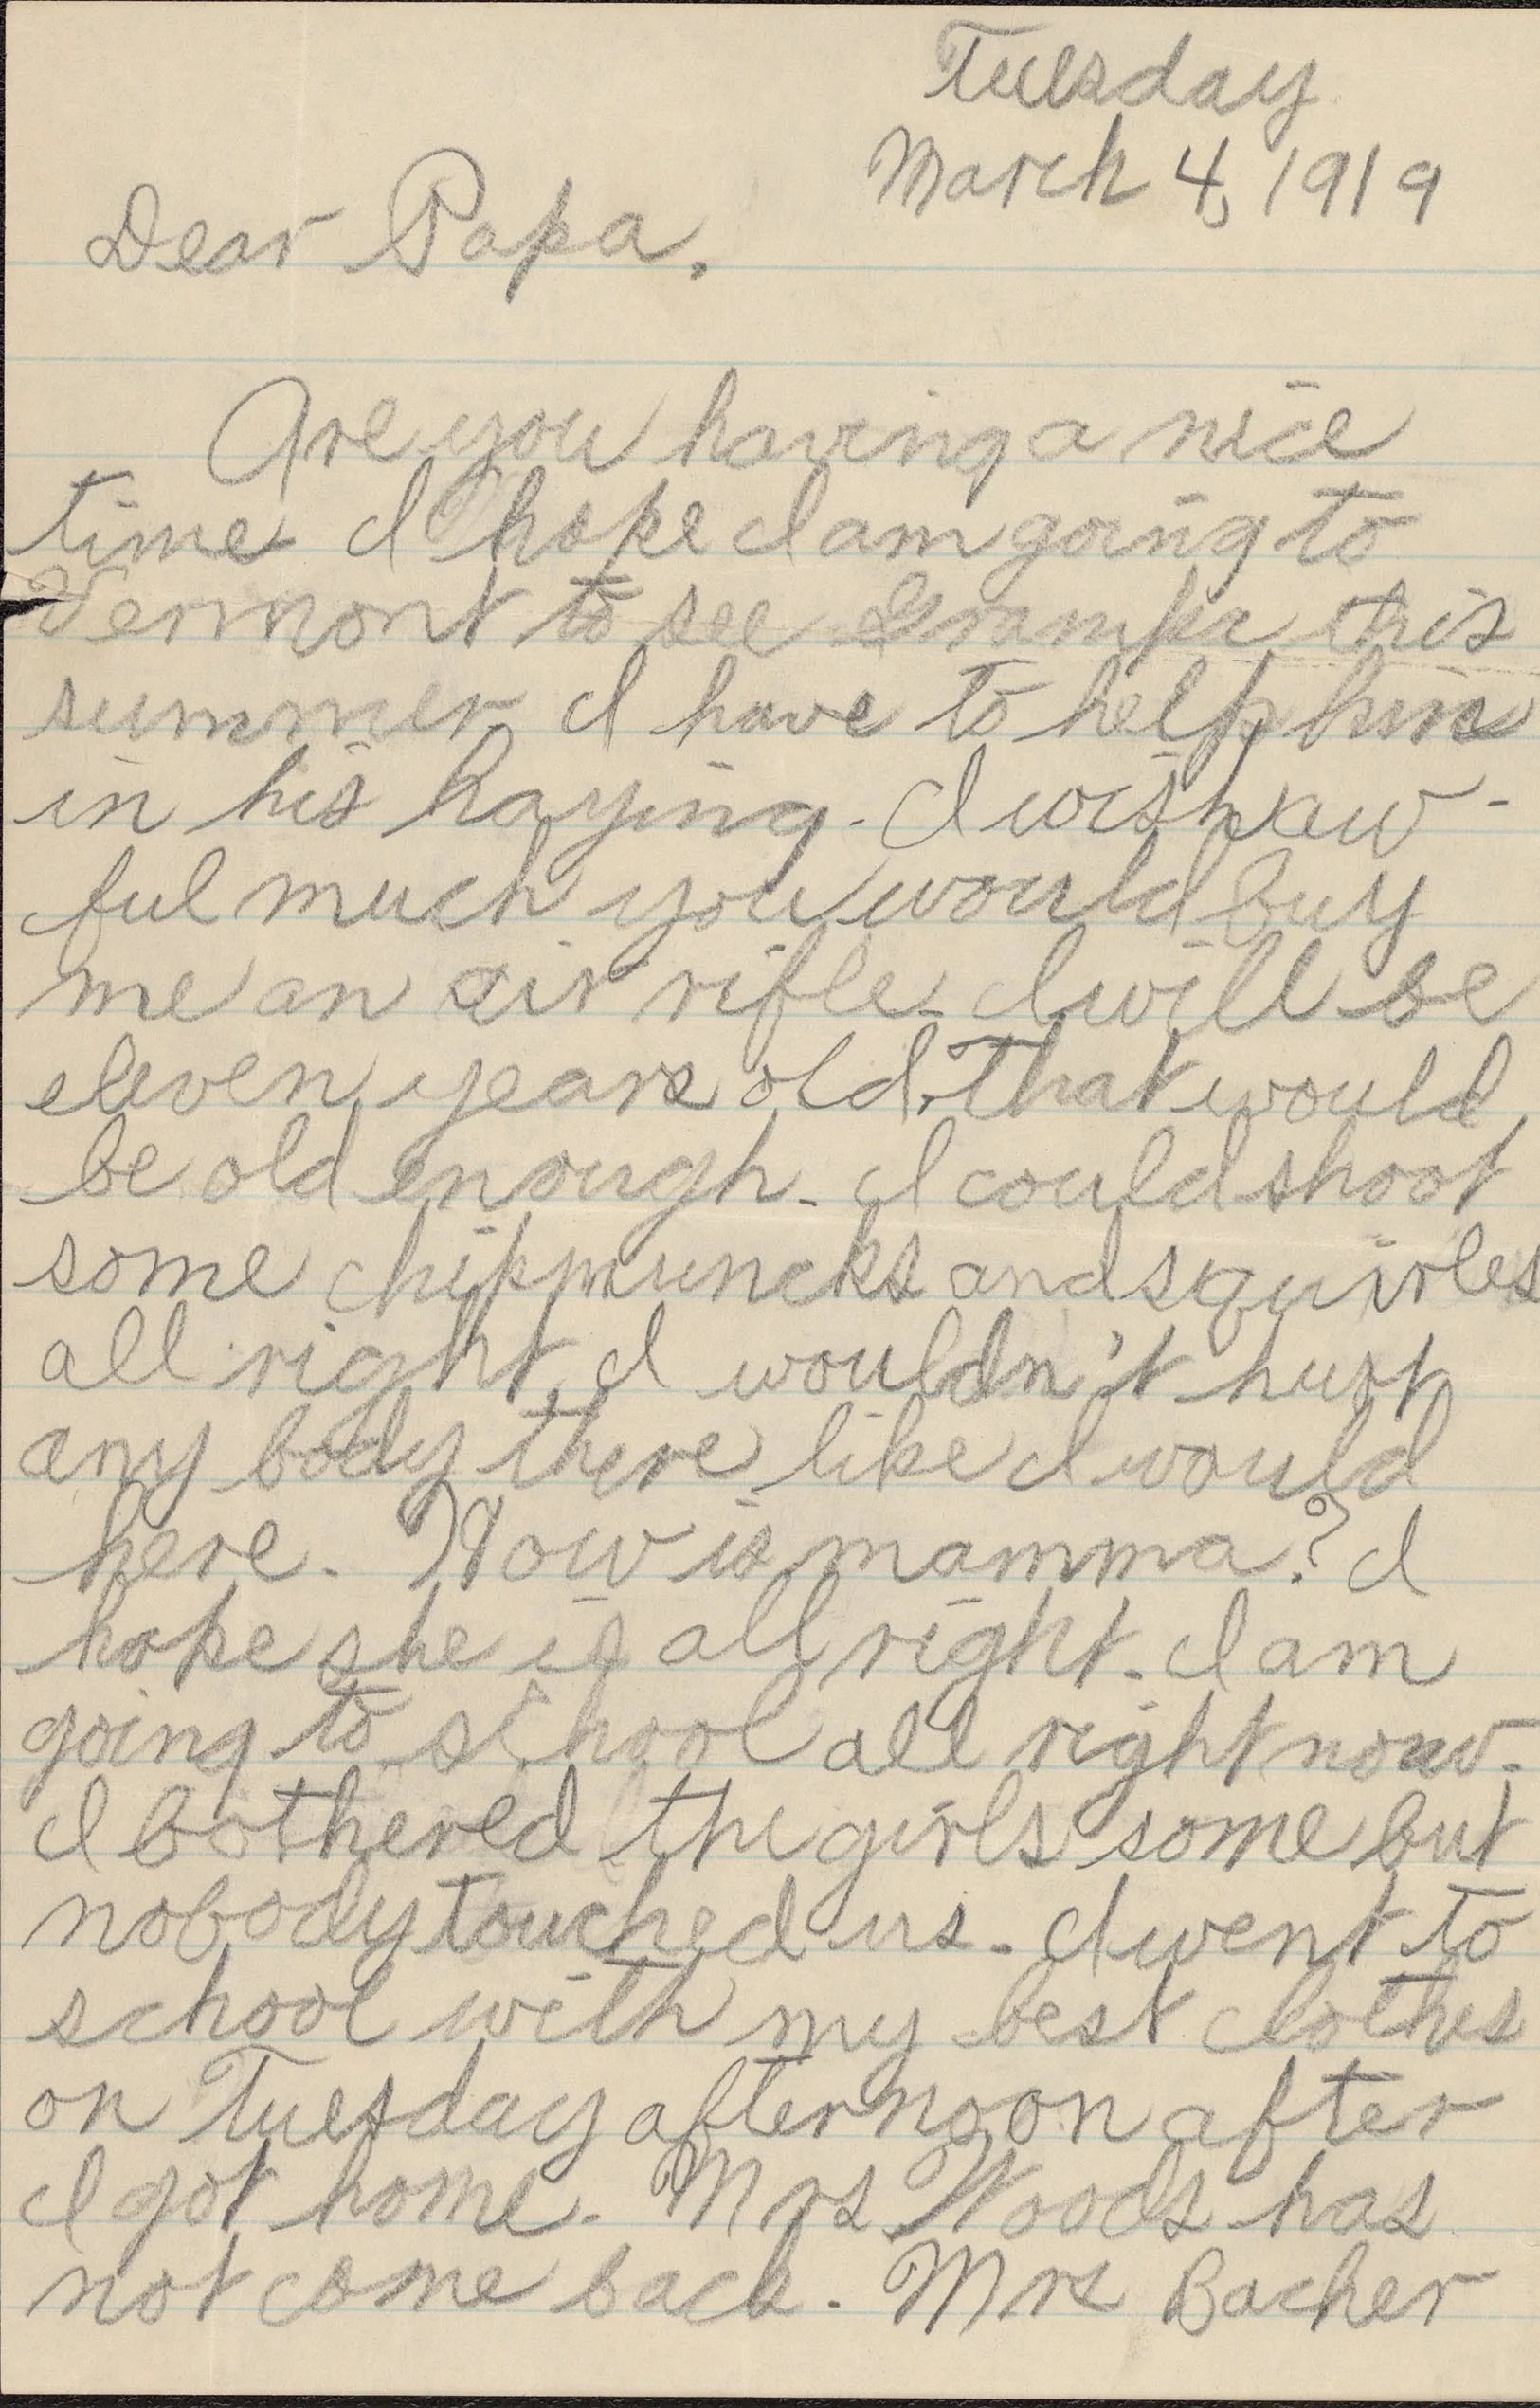 Tuesday
March 4, 1919
Dear Papa,
Are you having a nice
time I hope I am going to
Vermont to see Grampa this
summer I have to help him
in his haying. I wish aw-
ful much you would buy
me an air rifle. I will be
eleven years old. That would
be old enough. I could shoot
some chipmuncks and squirles
all right. I wouldn't hurt
any body there like I would
here. How is mamma? I
hope she is all right. I am
going to school all right now.
I bothered the girls some but
nobody touched us. I went to
school with my best clothes
on Tuesday afternoon after
I got home. Mrs Woods has
not come back. Mrs Bacher